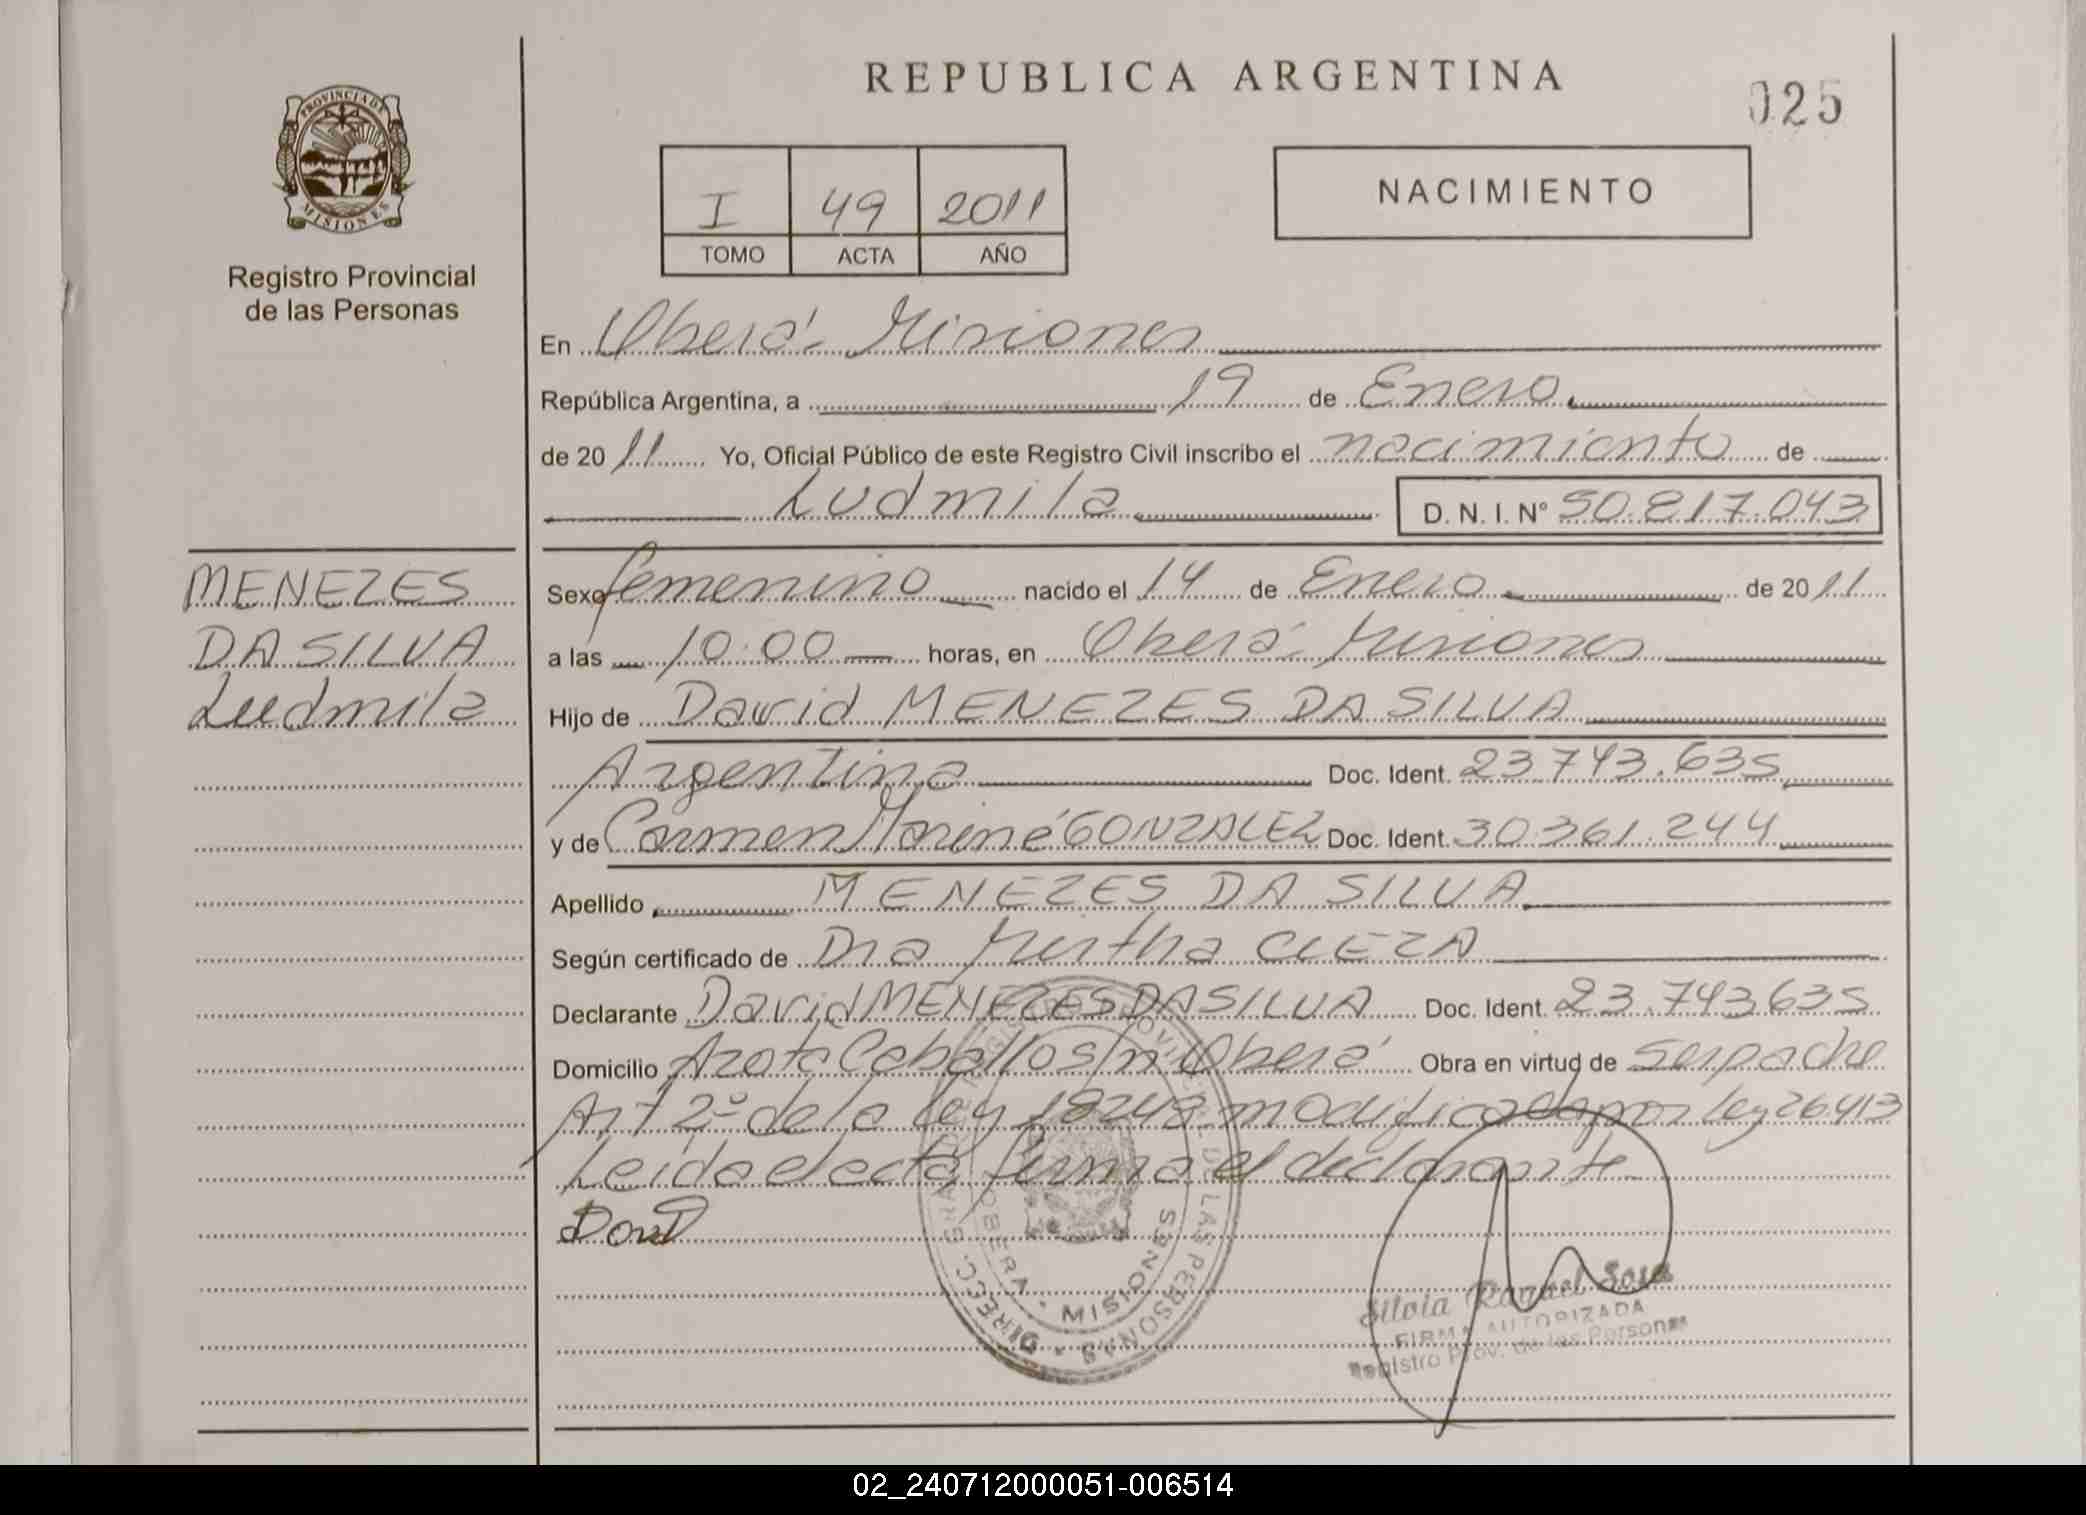 REPUBLICA ARGENTINA
025
PROVINCIA DE MISIONES
Registro Provincial
de las Personas
I 49 2011
TOMO ACTA AÑO
NACIMIENTO
En Oberá - Misiones
República Argentina, a 19 de Enero
de 2011 Yo, Oficial Público de este Registro Civil inscribo el nacimiento de
Ludmila D. N. I. N° 50.817.043
MENEZES
DA SILVA
Ludmila
Sexo femenino nacido el 14 de Enero de 2011
a las 10:00 horas, en Oberá - Misiones
Hijo de David MENEZES DA SILVA
Argentina Doc. Ident. 23.743.635
y de Carmen Mariné GONZALEZ Doc. Ident. 30.361.244
Apellido MENEZES DA SILVA
Según certificado de Dra Mirtha CUEZA
Declarante David MENEZES DA SILVA Doc. Ident. 23.743635
Domicilio Azota Caballo s/n Oberá Obra en virtud de
Art 2° de la ley 18248 modificada por ley 26.413
Leida el acta, firma el declarante
DIRECC. GRAL. DE REGISTRO PROVINCIAL DE LAS PERSONAS
OBERA - MISIONES
Silvia Raquel Sosa
FIRMA AUTORIZADA
Registro Prov. de las Personas
02_240712000051-006514